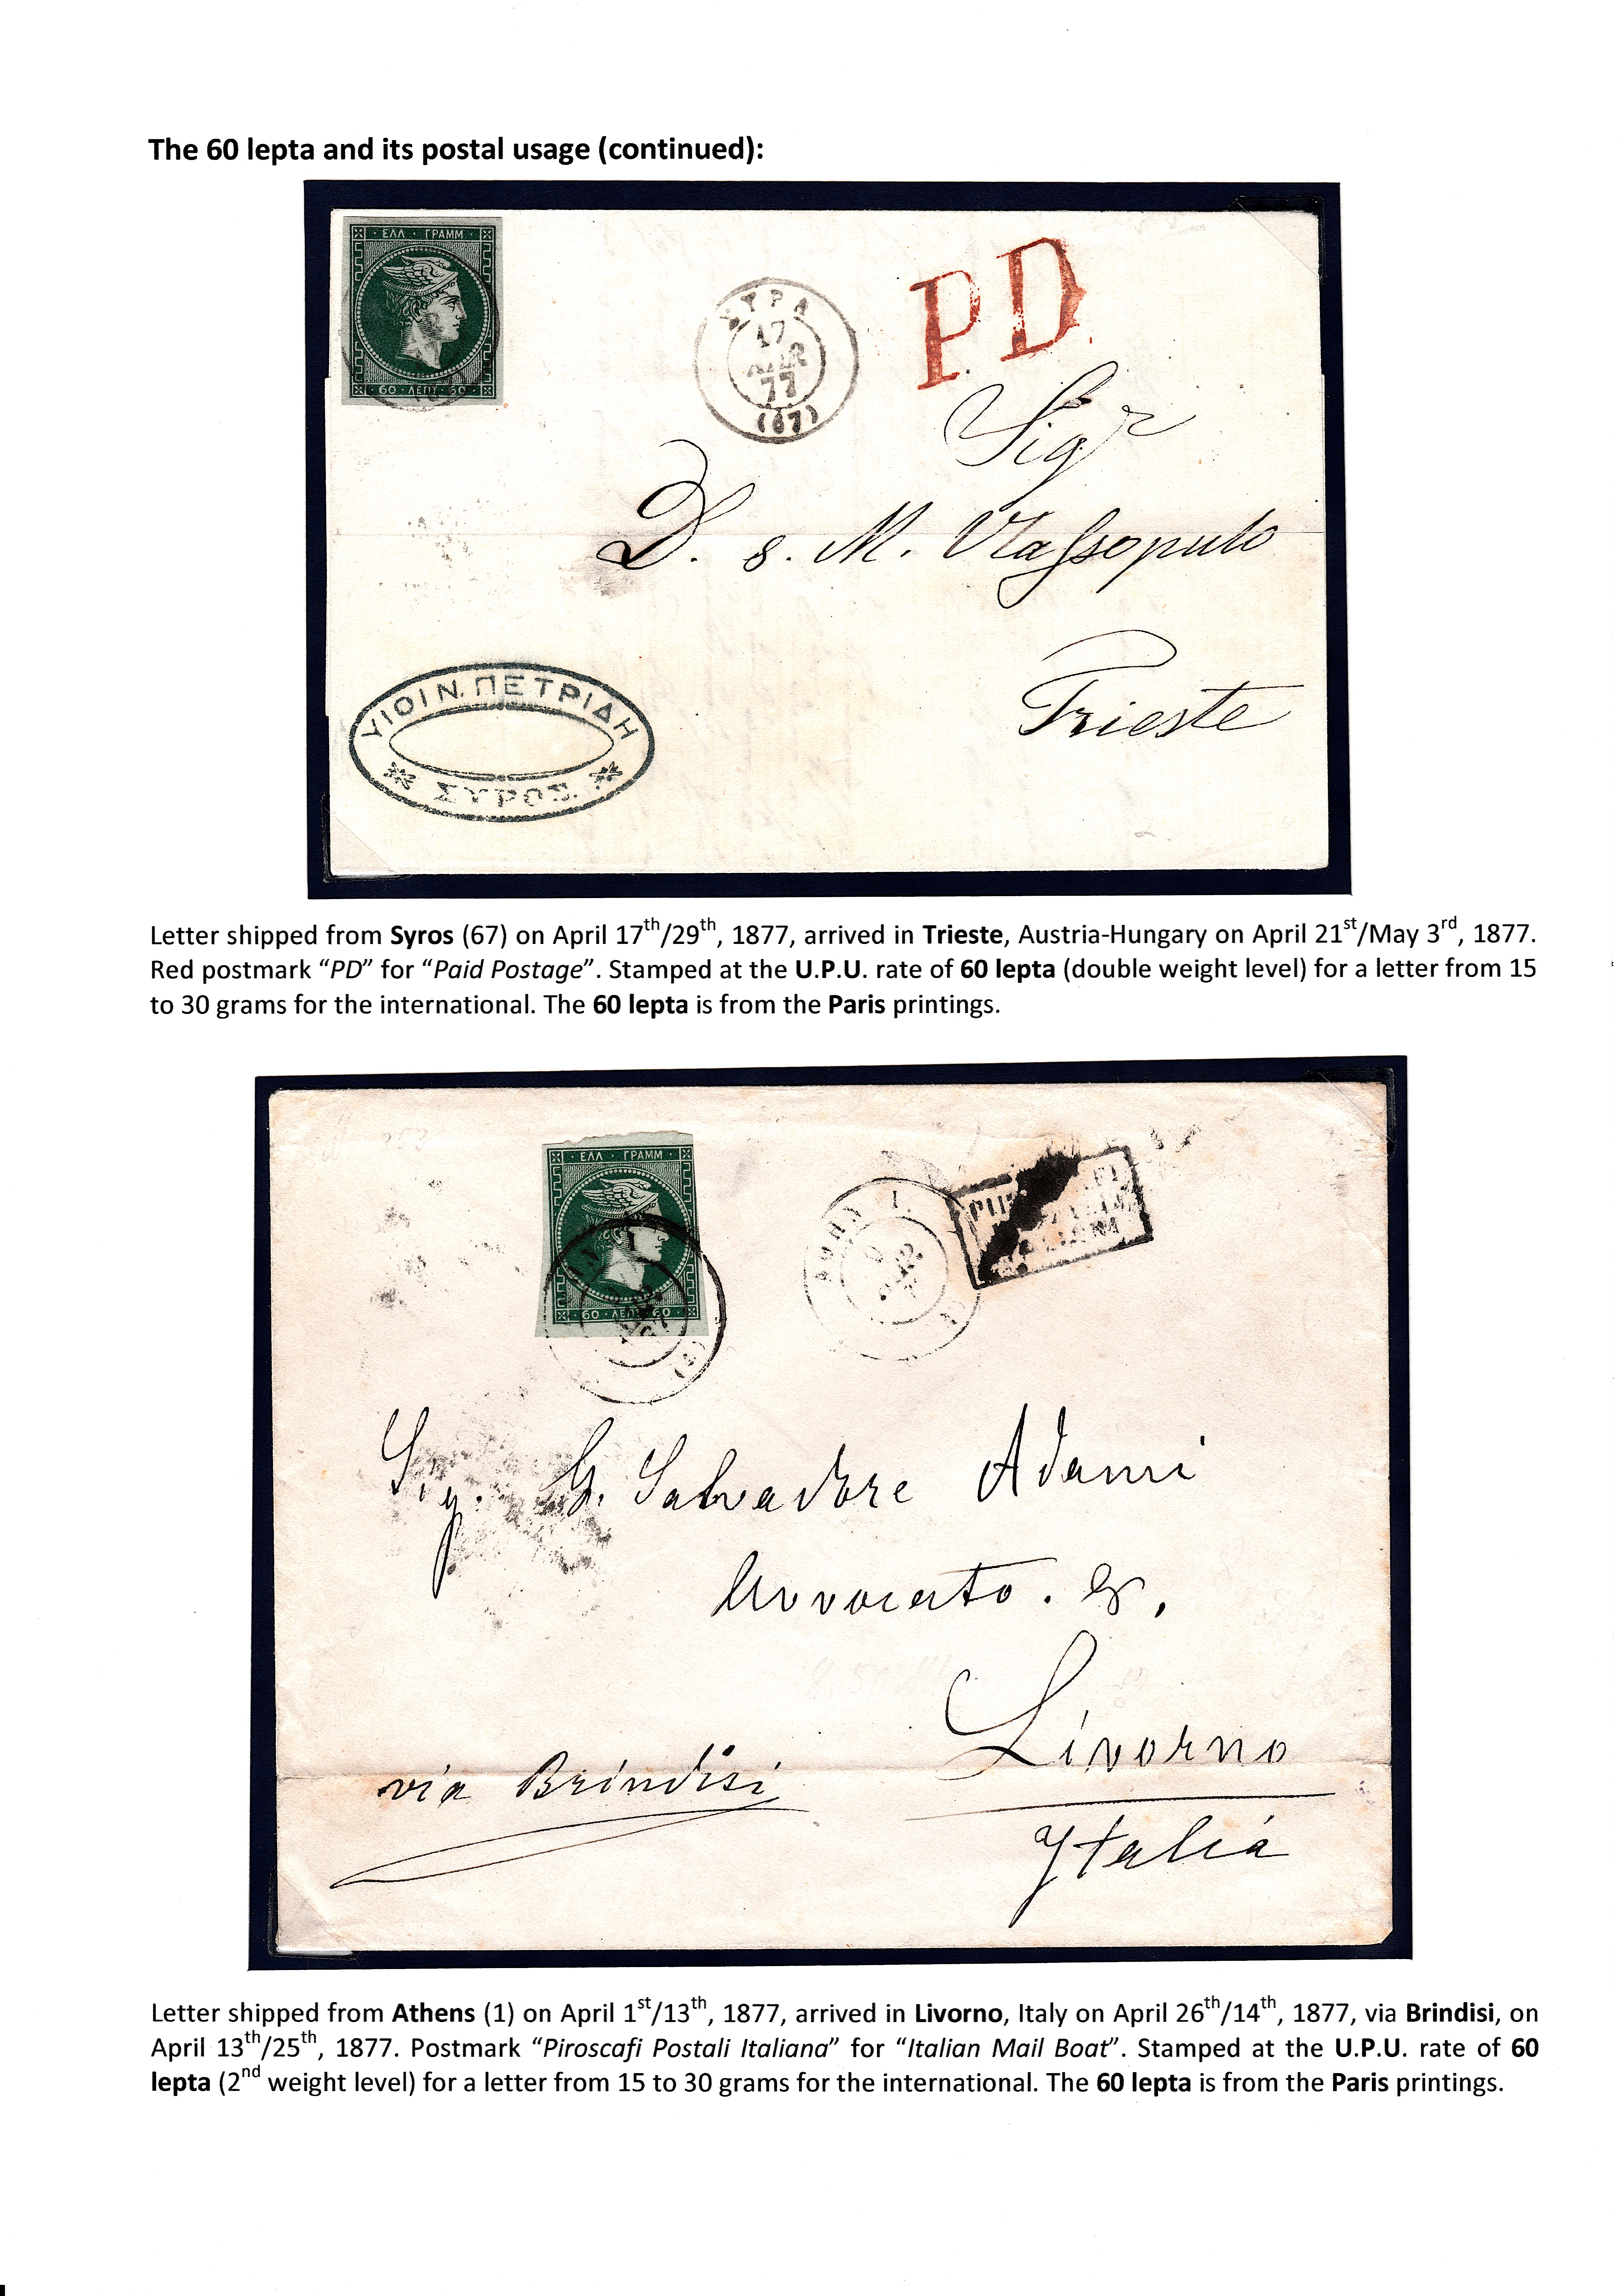 The 60 lepta and its postal usage (continued):
ΕΛΛ · ΓΡΑΜΜ
60 · ΛΕΠΤ · 60
ΣΥΡΑ
17
ΑΠΡ
77
(67)
PD
Sigr
D. s. M. Vlassopulo
Trieste
ΥΙΟΙ Ν. ΠΕΤΡΙΔΗ
ΣΥΡΟΣ.
Letter shipped from Syros (67) on April 17th/29th, 1877, arrived in Trieste, Austria-Hungary on April 21st/May 3rd, 1877.
Red postmark “PD” for “Paid Postage”. Stamped at the U.P.U. rate of 60 lepta (double weight level) for a letter from 15
to 30 grams for the international. The 60 lepta is from the Paris printings.
ΕΛΛ · ΓΡΑΜΜ
60 · ΛΕΠΤ · 60
Sig. G. Salvadore Adami
Avvocato.
Livorno
via Brindisi
Italia
Letter shipped from Athens (1) on April 1st/13th, 1877, arrived in Livorno, Italy on April 26th/14th, 1877, via Brindisi, on
April 13th/25th, 1877. Postmark “Piroscafi Postali Italiana” for “Italian Mail Boat”. Stamped at the U.P.U. rate of 60
lepta (2nd weight level) for a letter from 15 to 30 grams for the international. The 60 lepta is from the Paris printings.